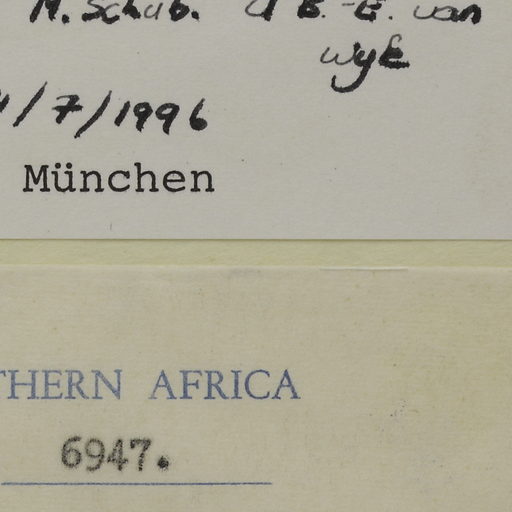 M. Schub. & E.-E. van
Wyk
/7/1996
München
THERN AFRICA
6947.